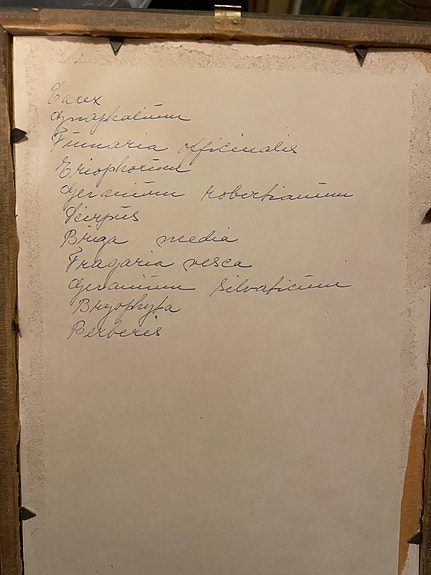 Carex
Gnaphalium
Fumaria officinalis
Eriophorum
Geranium robertianum
Scirpus
Briza media
Fragaria vesca
Geranium silvaticum
Bryophyta
Berberis